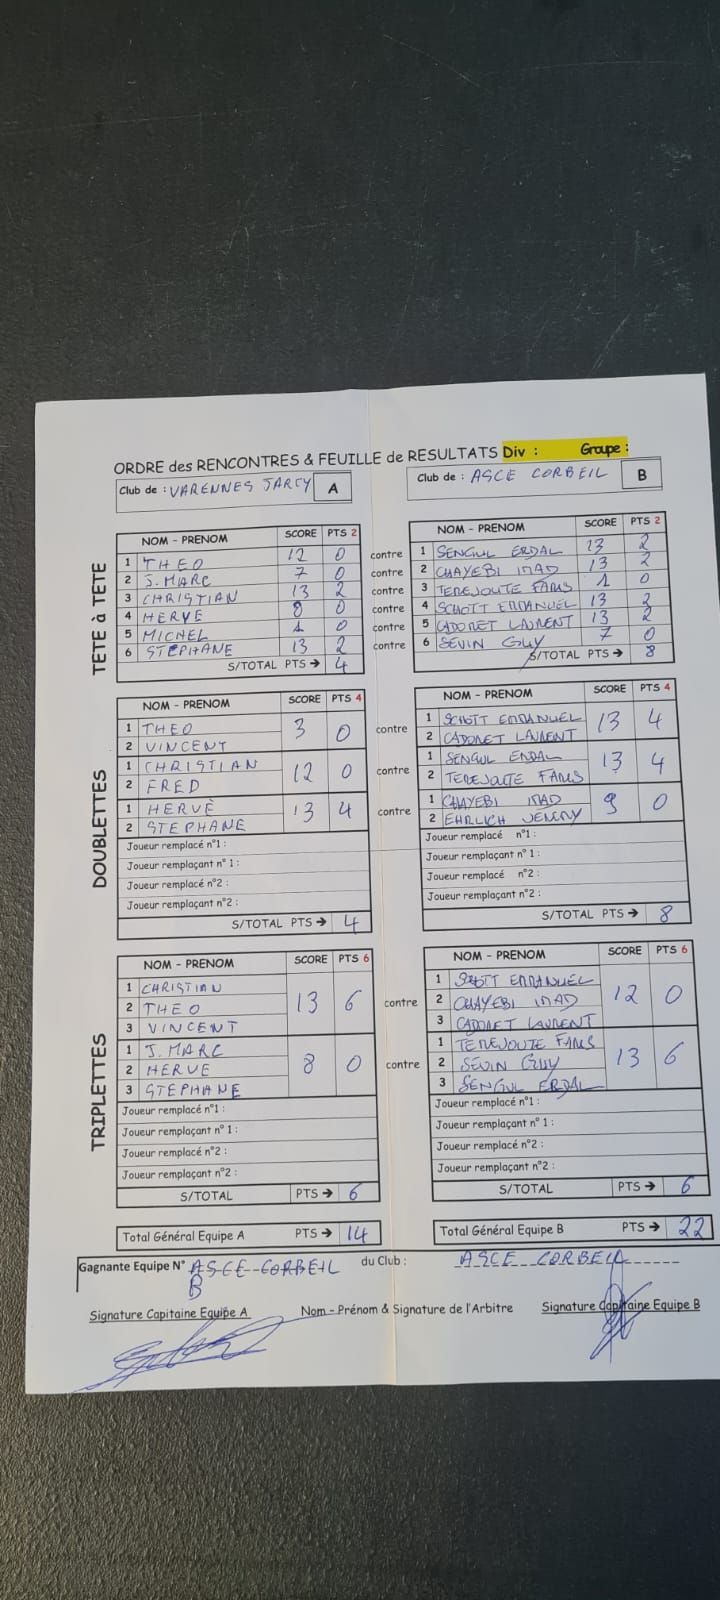 ORDRE des RENCONTRES & FEUILLE de RESULTATS Div : Groupe :
Club de : VARENNES JARCY A
Club de : ASCE CORBEIL B
TETE à TETE
NOM - PRENOM SCORE PTS 2
1 THEO 12 0
2 J. MARC 7 0
3 CHRISTIAN 13 2
4 HERVE 8 0
5 MICHEL 1 0
6 STEPHANE 13 2
S/TOTAL PTS → 4
contre
contre
contre
contre
contre
contre
NOM - PRENOM SCORE PTS 2
1 SENGUL ERDAL 13 2
2 CHAYEBI IMAD 13 2
3 TEREJOUTE FARIS 1 0
4 SCHOTT EMMANUEL 13 2
5 CADORET LAURENT 13 2
6 SEVIN GUY 7 0
S/TOTAL PTS → 8
DOUBLETTES
NOM - PRENOM SCORE PTS 4
1 THEO 3 0
2 VINCENT
1 CHRISTIAN 12 0
2 FRED
1 HERVÉ 13 4
2 STEPHANE
Joueur remplacé n°1 :
Joueur remplaçant n° 1 :
Joueur remplacé n°2 :
Joueur remplaçant n°2 :
S/TOTAL PTS → 4
contre
contre
contre
NOM - PRENOM SCORE PTS 4
1 SCHOTT EMMANUEL 13 4
2 CADORET LAURENT
1 SENGUL ERDAL 13 4
2 TEREJOUTE FARIS
1 CHAYEBI IMAD 9 0
2 EHRLICH JENNY
Joueur remplacé n°1 :
Joueur remplaçant n° 1 :
Joueur remplacé n°2 :
Joueur remplaçant n°2 :
S/TOTAL PTS → 8
TRIPLETTES
NOM - PRENOM SCORE PTS 6
1 CHRISTIAN
2 THEO 13 6
3 VINCENT
1 J. MARC
2 HERVE 8 0
3 STEPHANE
Joueur remplacé n°1 :
Joueur remplaçant n° 1 :
Joueur remplacé n°2 :
Joueur remplaçant n°2 :
S/TOTAL PTS → 6
contre
contre
NOM - PRENOM SCORE PTS 6
1 SCHOTT EMMANUEL
2 CHAYEBI IMAD 12 0
3 CADORET LAURENT
1 TEREJOUTE FARIS
2 SEVIN GUY 13 6
3 SENGUL ERDAL
Joueur remplacé n°1 :
Joueur remplaçant n° 1 :
Joueur remplacé n°2 :
Joueur remplaçant n°2 :
S/TOTAL PTS → 6
Total Général Equipe A PTS → 14
Total Général Equipe B PTS → 22
Gagnante Equipe N° ASCE CORBEIL du Club : ASCE CORBEIL
B
Signature Capitaine Equipe A Nom - Prénom & Signature de l'Arbitre Signature Capitaine Equipe B